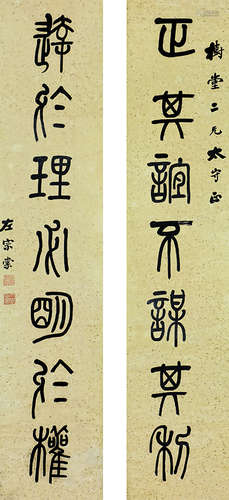 樹堂二兄太守正
正其誼不謀其利
達於理必明於權
左宗棠